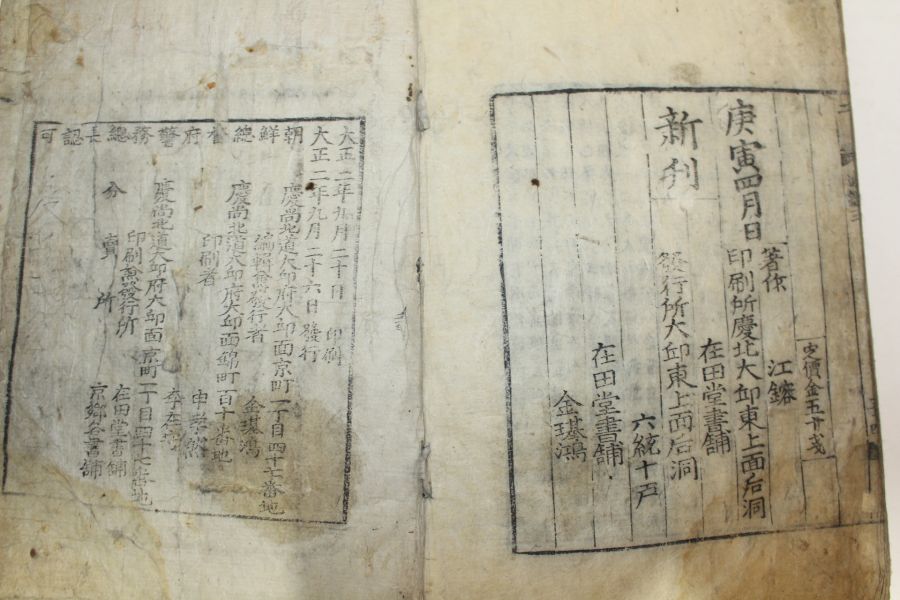 定價金五十戔
著作 江鎔
庚寅四月日
印刷所慶北大邱東上面后洞
在田堂書舖
新刊
發行所大邱東上面后洞
六統十戶
在田堂書舖
金璂鴻
大正二年九月二十日 印刷
大正二年九月二十六日 發行
朝鮮總督府警務總長認可
慶尚北道大邱府大邱面京町一丁目四十七番地
編輯兼發行者 金璂鴻
慶尚北道大邱府大邱面錦町百十番地
印刷者
慶尚北道大邱府大邱面京町一丁目四十七番地
印刷兼發行所 在田堂書舖
分賣所 京鄉各書舖